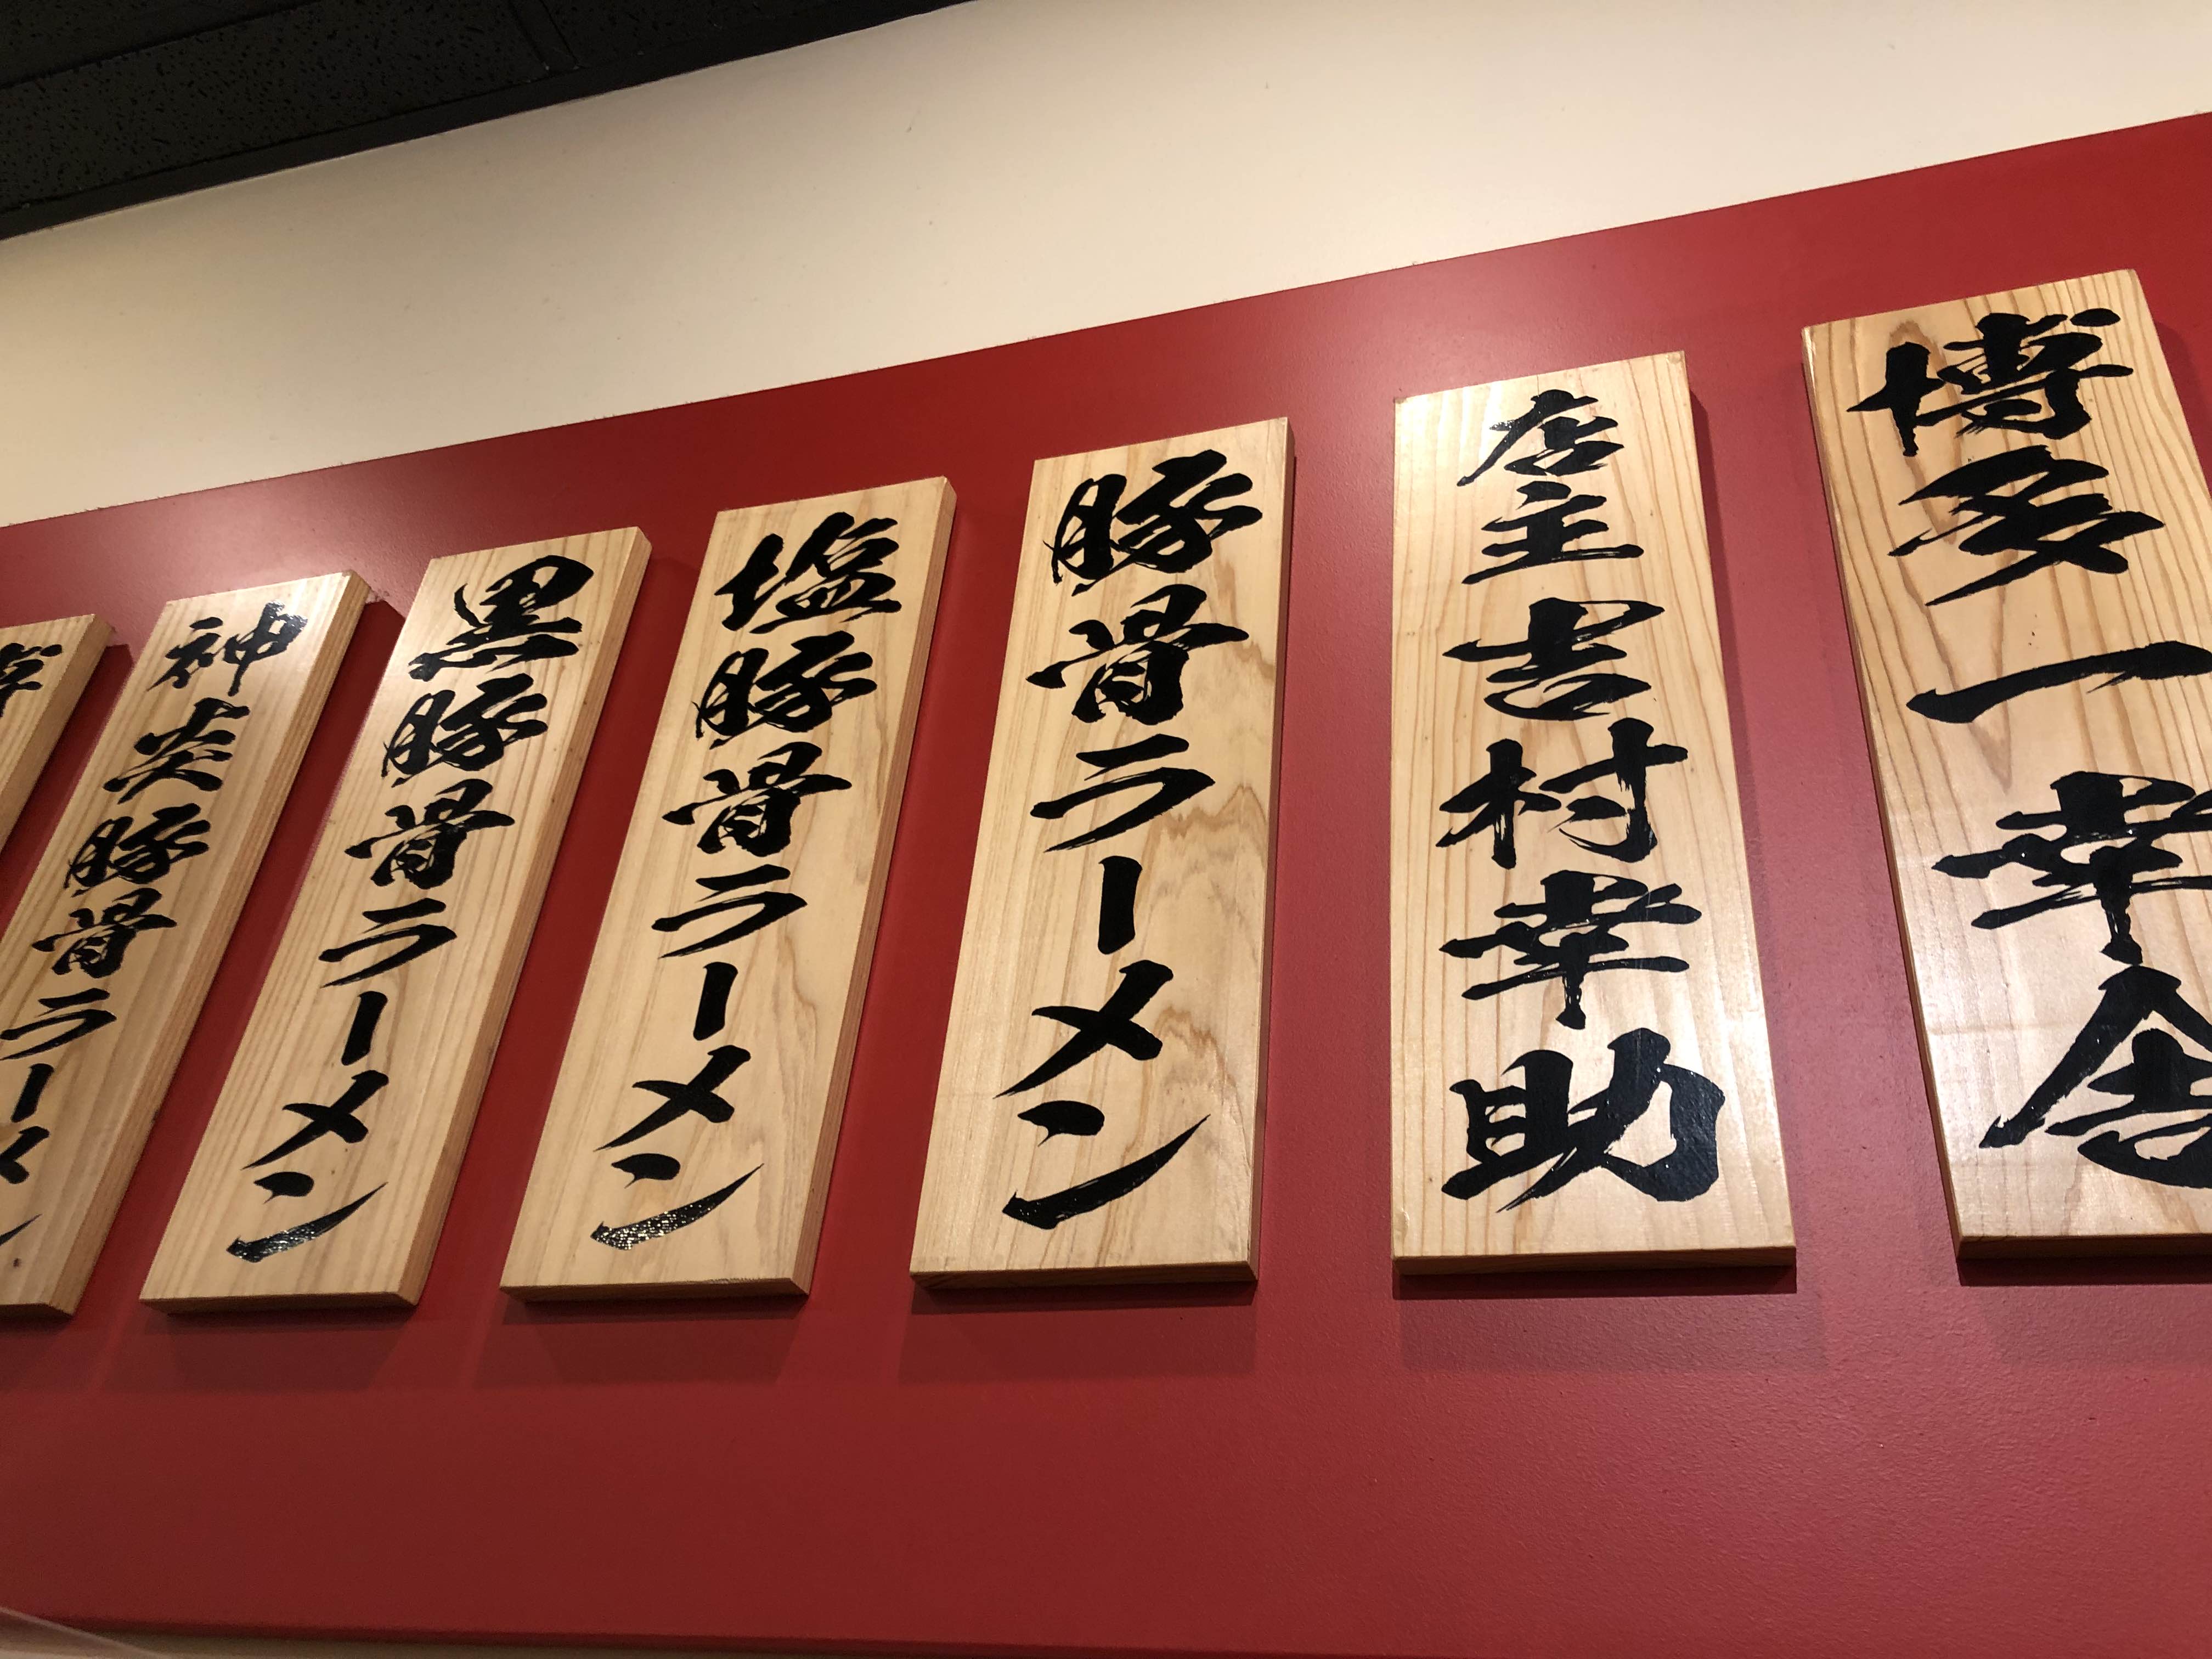 博多一幸舎
店主吉村幸助
豚骨ラーメン
塩豚骨ラーメン
黒豚骨ラーメン
神炎豚骨ラーメン